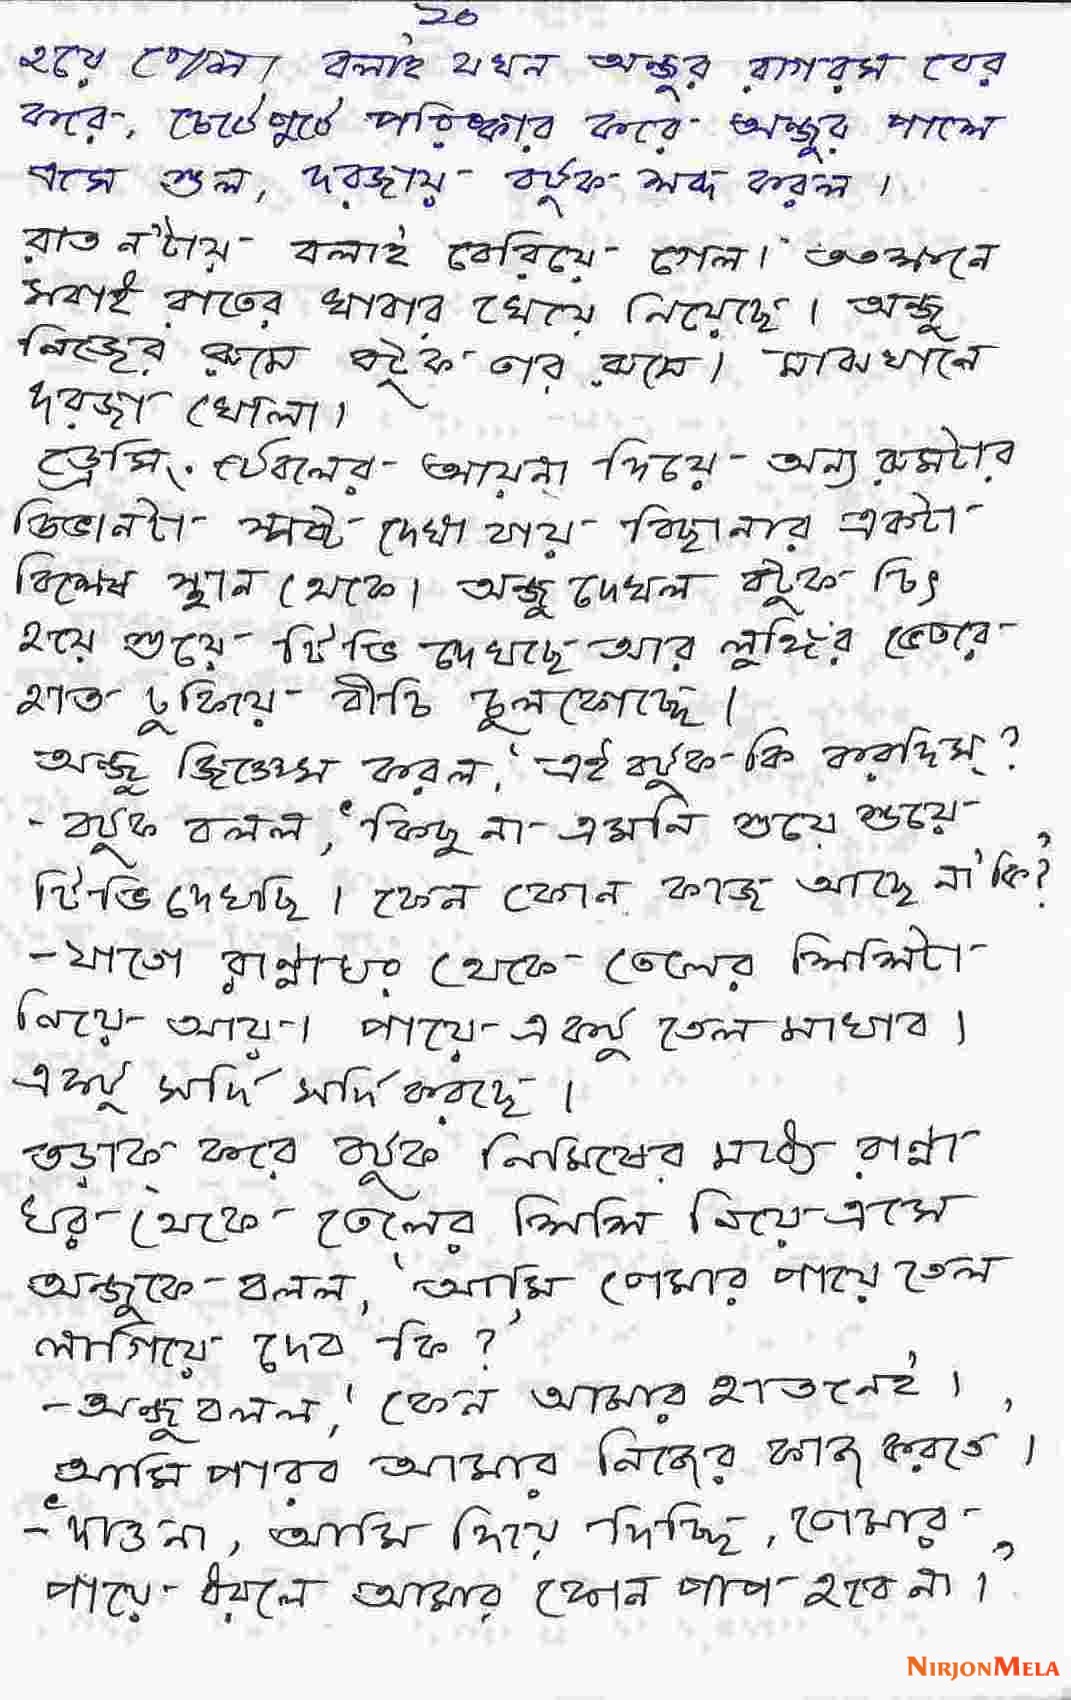 ২০
হয়ে গেল। বলাই যখন অঞ্জুর রাগরস বের
করে, চেটেপুটে পরিষ্কার করে অঞ্জুর পাশে
এসে শুল, দরজায় বটুক শব্দ করল।
রাত ন'টায় বলাই বেরিয়ে গেল। ততক্ষনে
সবাই রাতের খাবার খেয়ে নিয়েছে। অঞ্জু
নিজের রুমে বটুক তার রুমে। মাঝখানে
দরজা খোলা।
ড্রেসিং টেবলের আয়না দিয়ে অন্য রুমটার
ডিভানটা স্পষ্ট দেখা যায় বিছানার একটা
বিশেষ স্থান থেকে। অঞ্জু দেখল বটুক চিৎ
হয়ে শুয়ে টিভি দেখছে আর লুঙ্গির ভেতরে
হাত ঢুকিয়ে বীচি চুলকোচ্ছে।
অঞ্জু জিজ্ঞেস করল, 'এই বটুক কি করছিস্?
- বটুক বলল, 'কিছু না এমনি শুয়ে শুয়ে
টিভি দেখছি। কেন কোন কাজ আছে না কি?'
- যাতো রান্নাঘর থেকে তেলের শিশিটা
নিয়ে আয়। পায়ে একটু তেল মাখাব।
একটু সর্দি সর্দি করছে।
তড়াক করে বটুক নিমিষের মধ্যে রান্না
ঘর থেকে তেলের শিশি নিয়ে এসে
অঞ্জুকে বলল, 'আমি তোমার পায়ে তেল
লাগিয়ে দেব কি?'
- অঞ্জু বলল, 'কেন আমার হাত নেই।'
আমি পারব আমার নিজের কাজ করতে।'
- 'দাওনা, আমি দিয়ে দিচ্ছি, তোমার
পায়ে ধরলে আমার কোন পাপ হবে না।'
NIRJONMELA